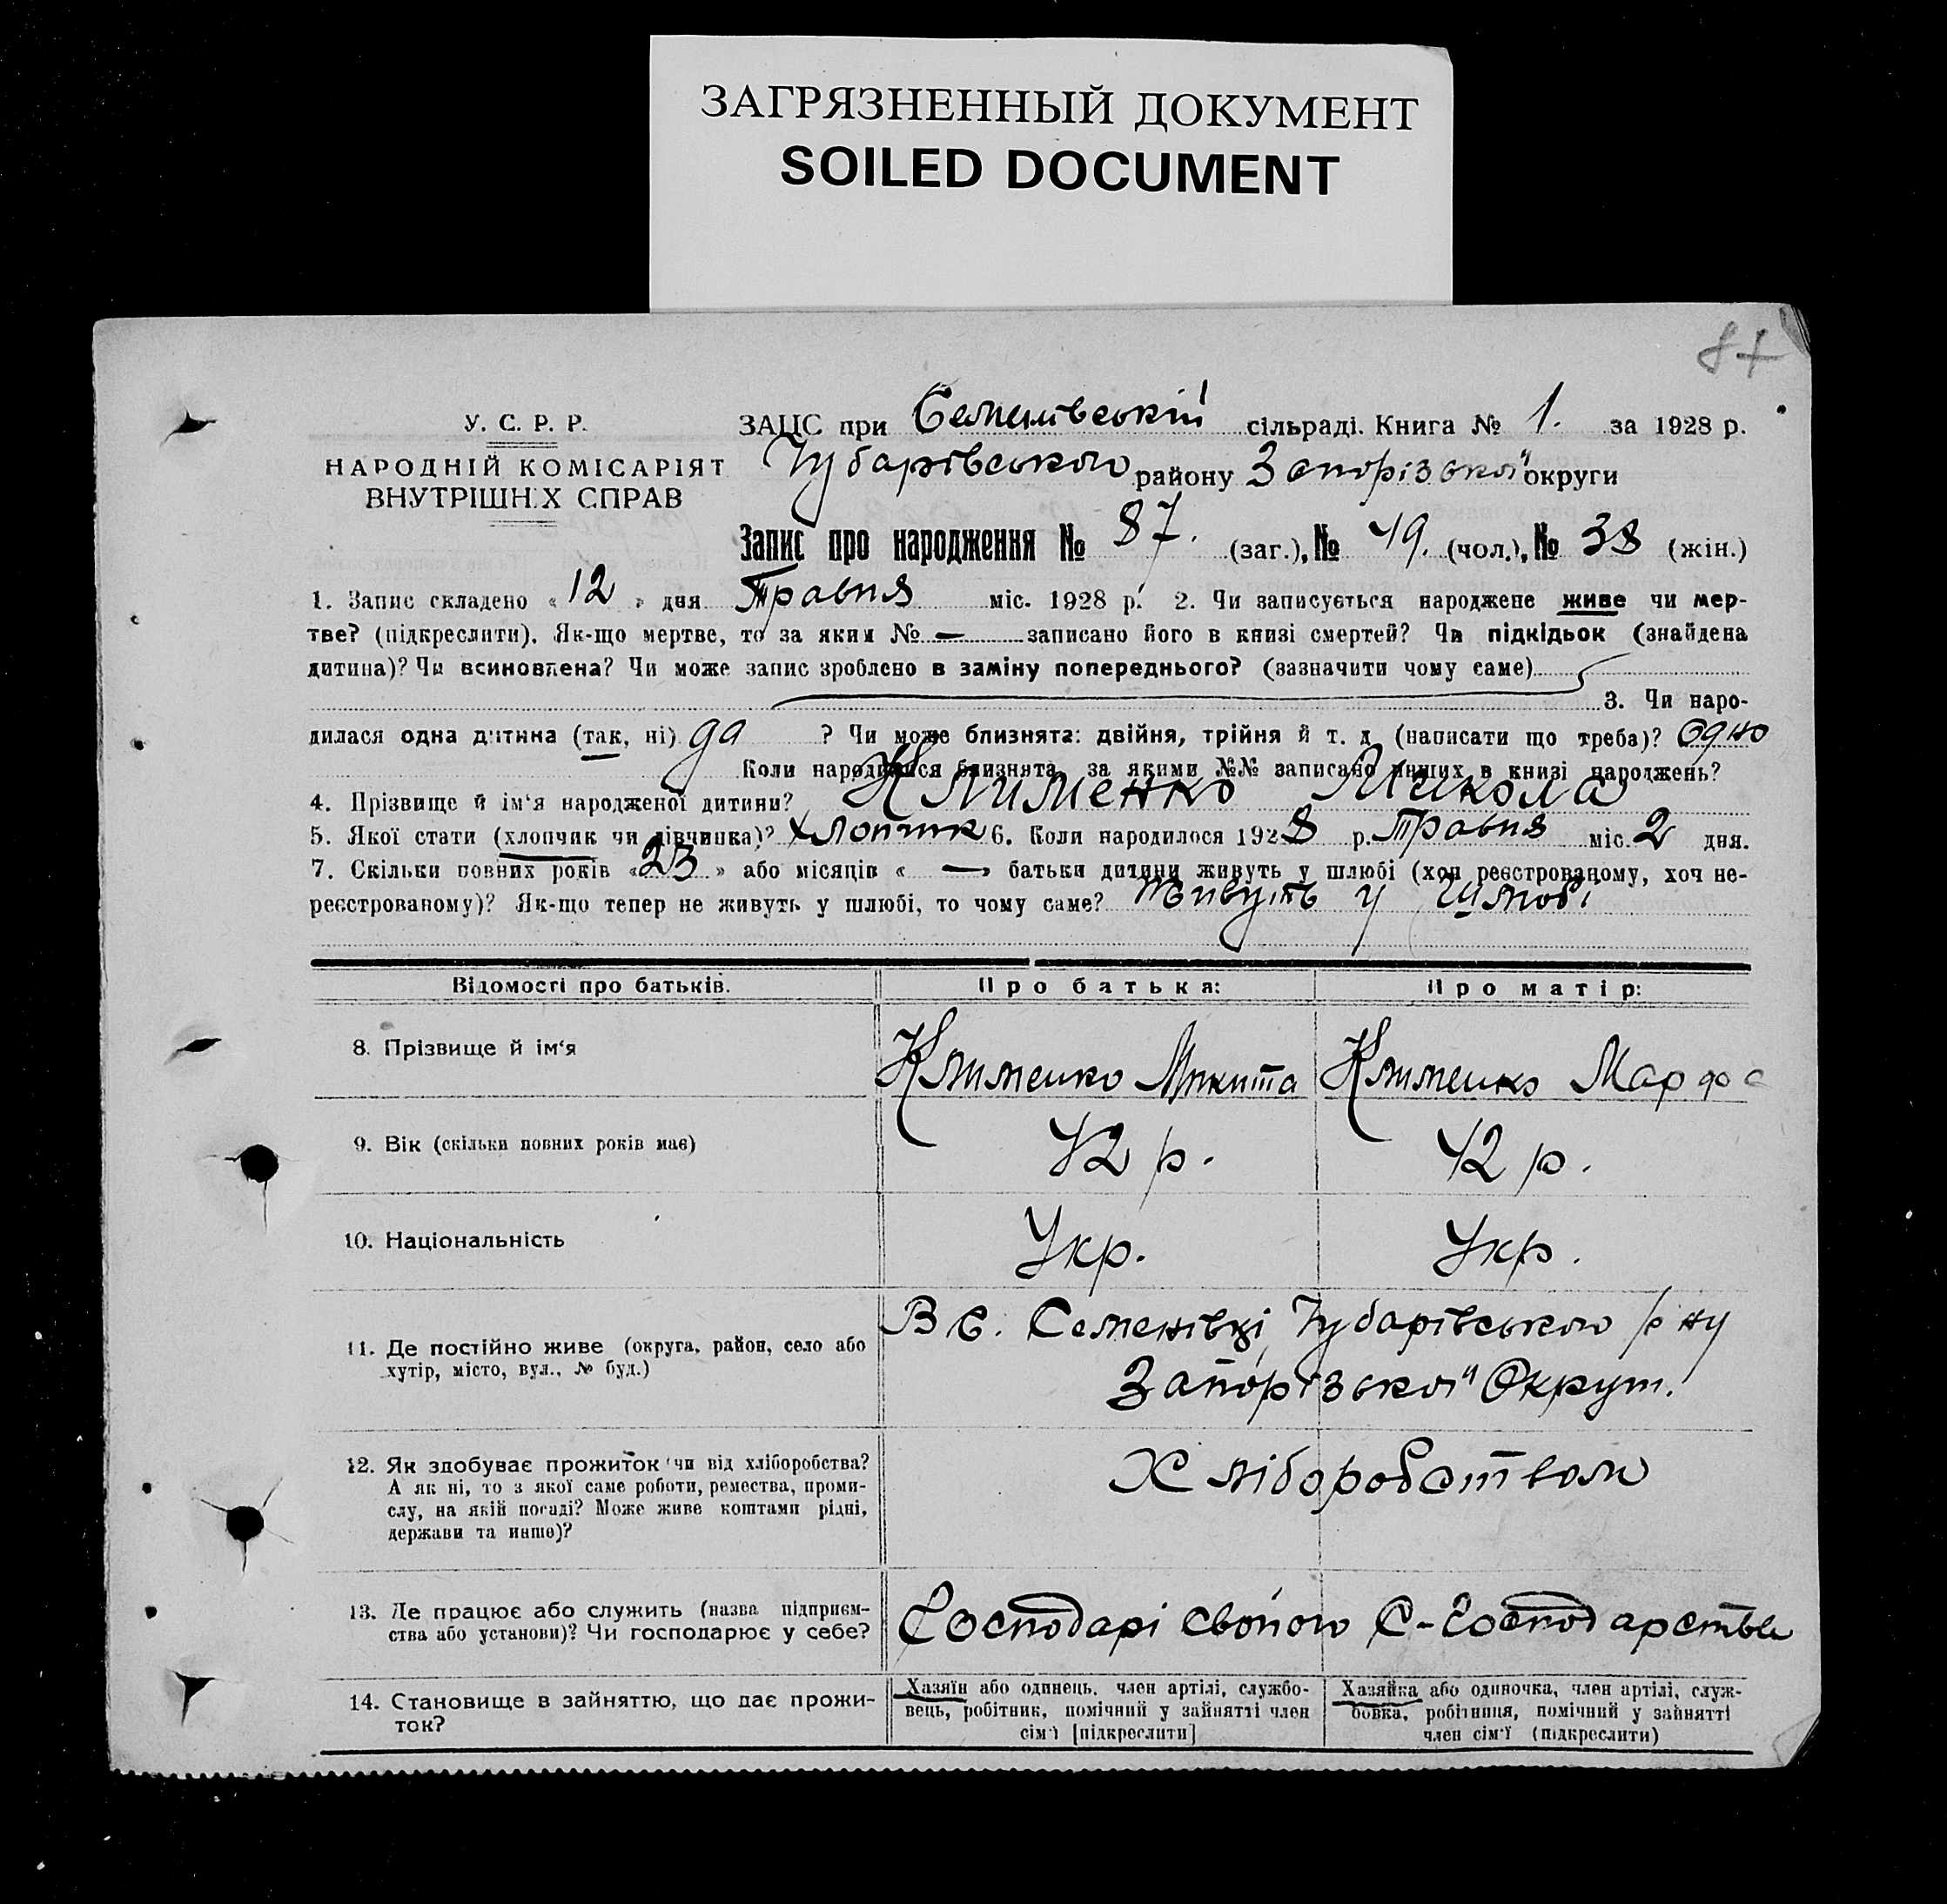 ЗАГРЯЗНЕННЫЙ ДОКУМЕНТ
SOILED DOCUMENT
87
У. С. Р. Р.
НАРОДНІЙ КОМІСАРІЯТ
ВНУТРІШНІХ СПРАВ
ЗАЦС при Семенівській сільраді. Книга № 1. за 1928 р.
Чубарівського району Запорізької округи
Запис про народження № 87. (заг.), № 49. (чол.), № 38 (жін.)
1. Запис складено « 12 » дня Травня міс. 1928 р. 2. Чи записується народжене живе чи мер-
тве? (підкреслити). Як-що мертве, то за яким № — записано його в книзі смертей? Чи підкідьок (знайдена
дитина)? Чи всиновлена? Чи може запис зроблено в заміну попереднього? (зазначити чому саме)
3. Чи наро-
дилася одна дитина (так, ні) да ? Чи може близнята: двійня, трійня й т. д. (написати що треба)? Одно
Коли народилися близнята, за якими №№ записано инших в книзі народжень?
4. Прізвище й ім'я народженої дитини? Клименко Микола
5. Якої стати (хлопчик чи дівчинка)? Хлопчик 6. Коли народилося 1928 р. Травня міс. 2 дня.
7. Скільки повних років « 23 » або місяців « — » батьки дитини живуть у шлюбі (хоч реєстрованому, хоч не-
реєстрованому)? Як-що тепер не живуть у шлюбі, то чому саме? Живуть у Шлюбі
Відомості про батьків. Про батька: Про матір:
8. Прізвище й ім'я Клименко Микита Клименко Марфа
9. Вік (скільки повних років має) 42 р. 42 р.
10. Національність Укр. Укр.
11. Де постійно живе (округа, район, село або
хутір, місто, вул., № буд.)
В с. Семенівці Чубарівського р-ну
Запорізької Округи.
12. Як здобуває прожиток чи від хліборобства?
А як ні, то з якої саме роботи, ремества, проми-
слу, на якій посаді? Може живе коштами рідні,
держави та инше)?
Хліборобством
13. Де працює або служить (назва підприєм-
ства або установи)? Чи господарює у себе?
Господарі свойого С-Господарства
14. Становище в зайняттю, що дає прожи-
ток?
Хазяїн або одинець, член артілі, службо-
вець, робітник, помічний у зайнятті член
сім'ї [підкреслити]
Хазяйка або одиночка, член артілі, служ-
бовка, робітниця, помічний у зайнятті
член сім'ї (підкреслити)